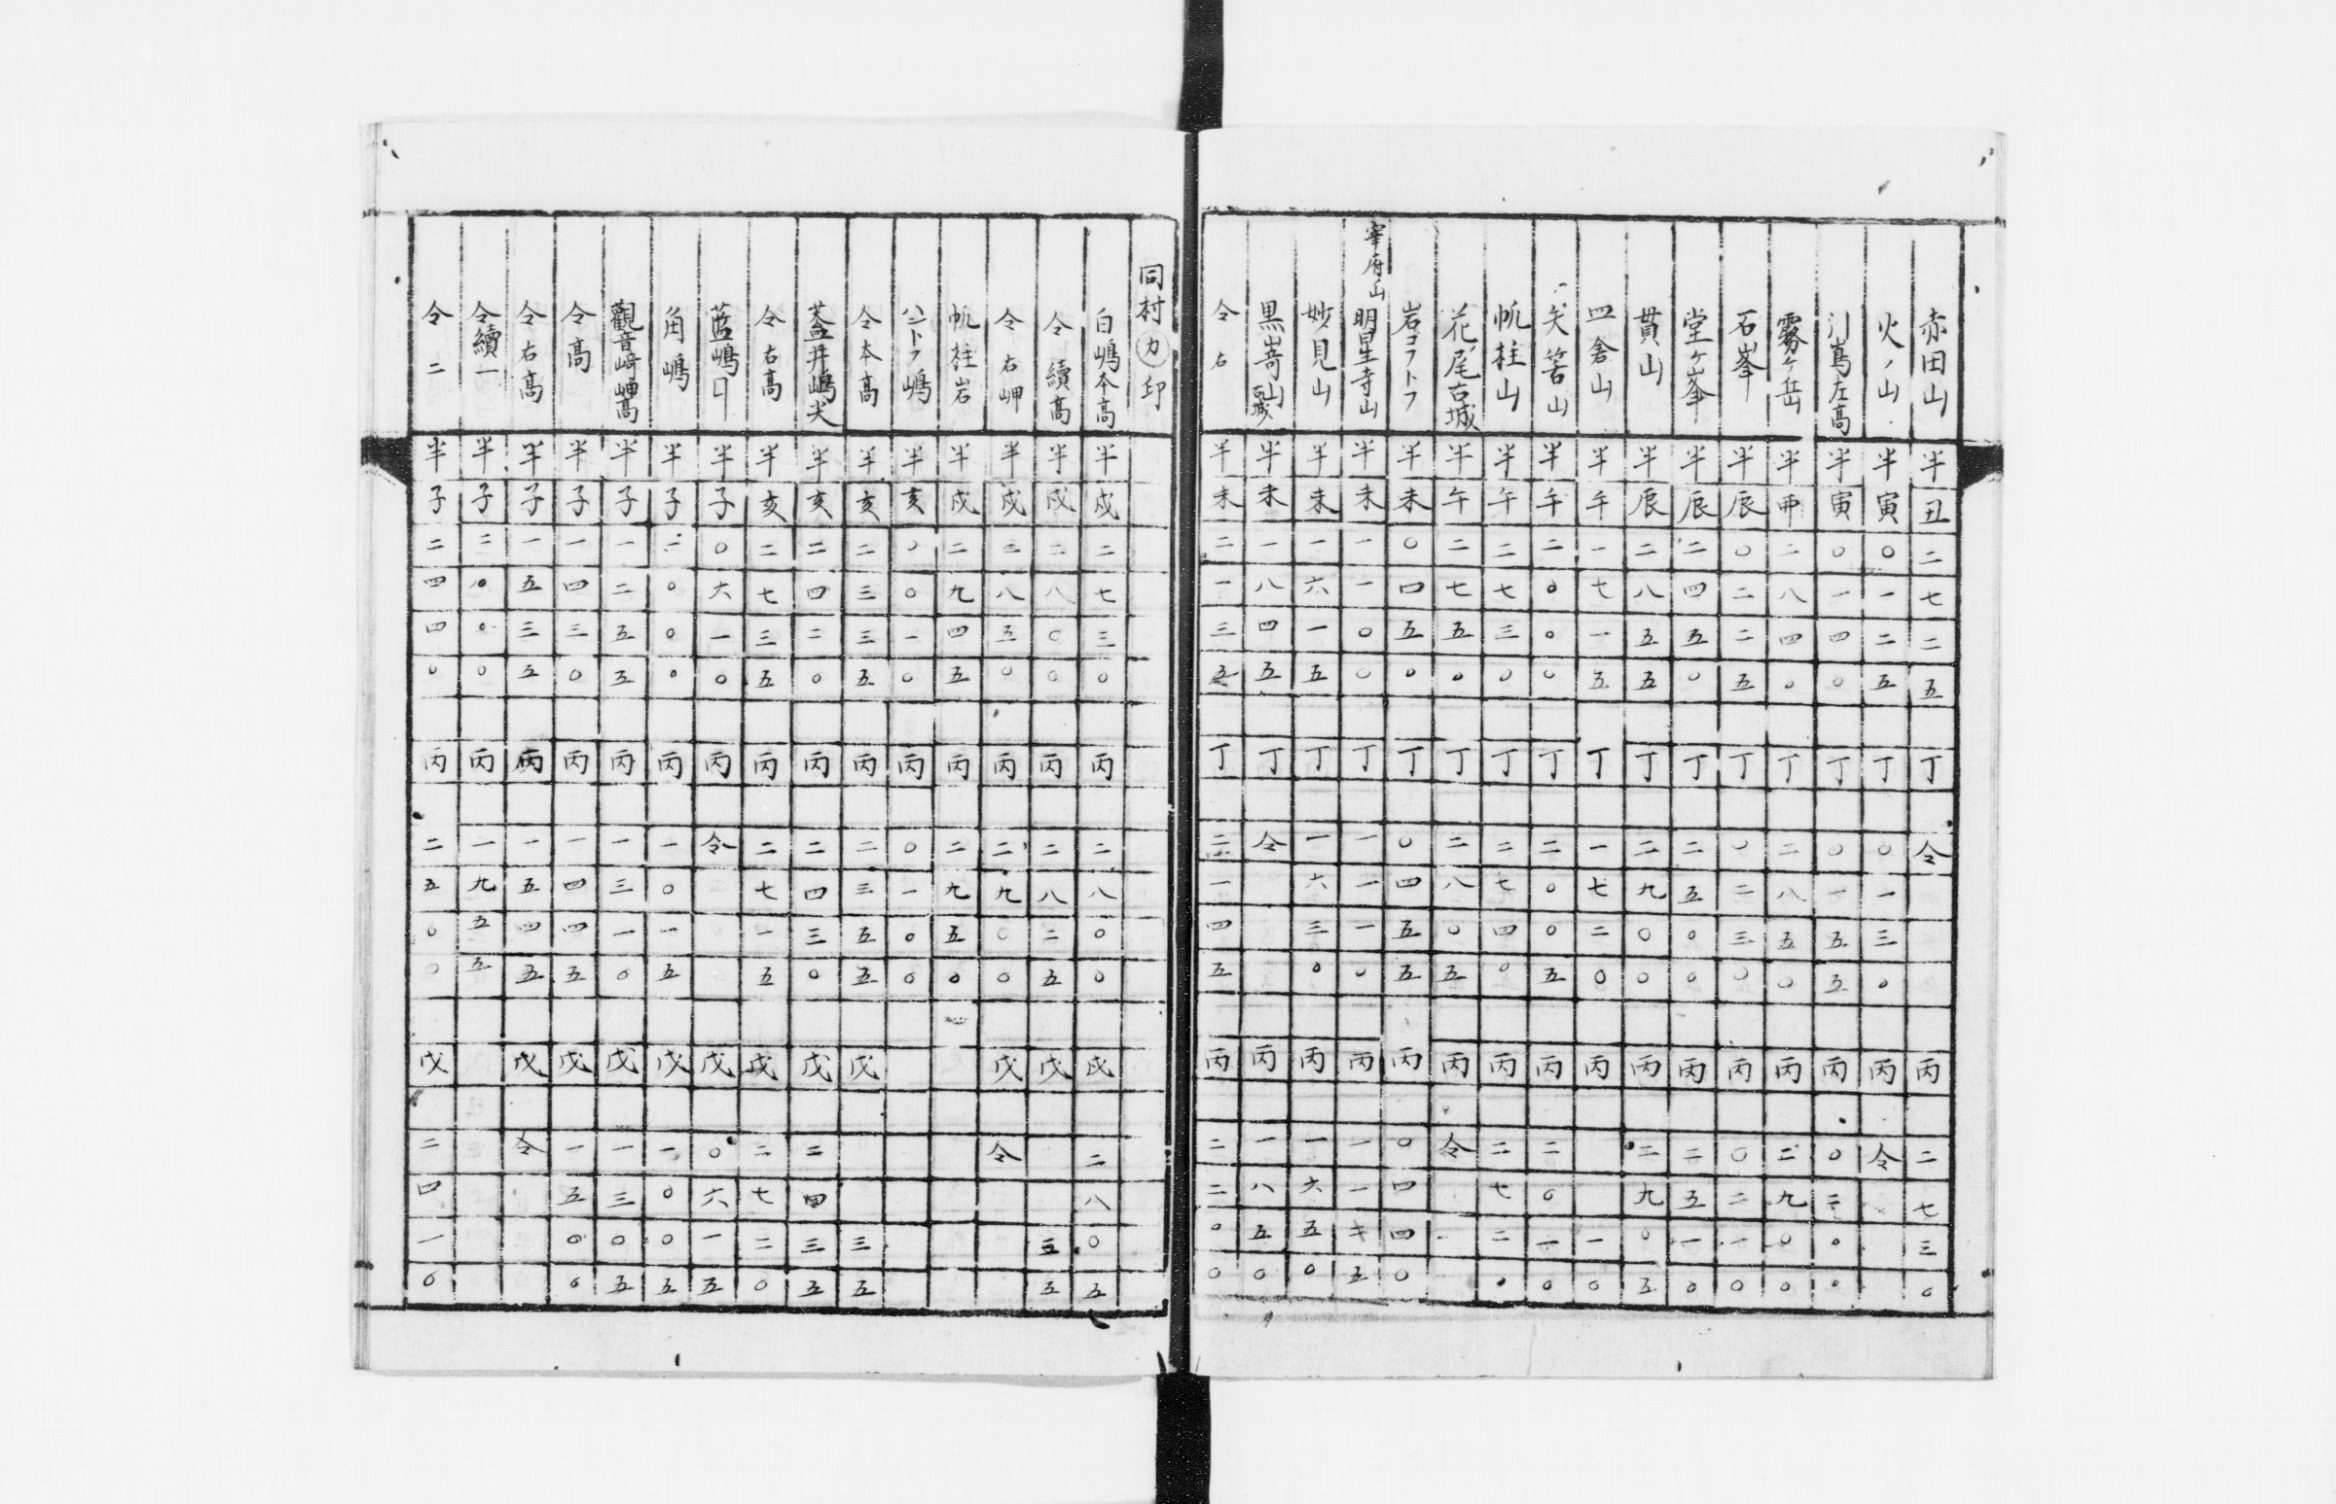 赤田山 半 丑 二 七 二 五 丁 令 丙 二 七 三 〇
火ノ山 半 寅 〇 一 二 五 丁 〇 一 三 〇 丙 令
嶌左高 半 寅 〇 一 四 〇 丁 〇 一 五 五 丙 〇 二 〇 〇
霧ヶ岳 半 二 八 四 〇 丁 二 八 五 〇 丙 二 九 〇 〇
石峯 半 辰 〇 二 二 五 丁 〇 二 三 〇 丙 〇 二 一 〇
堂ヶ峯 半 辰 二 四 五 〇 丁 二 五 〇 〇 丙 二 五 一 〇
貫山 半 辰 二 八 五 五 丁 二 九 〇 〇 丙 二 九 〇 五
皿倉山 半 午 一 七 一 五 丁 一 七 二 〇 丙 一 〇
矢筈山 半 午 二 〇 〇 〇 丁 二 〇 〇 五 丙 二 〇 一 〇
帆柱山 半 午 二 七 三 〇 丁 二 七 四 〇 丙 二 七 二 〇
花尾古城 半 午 二 七 五 〇 丁 二 八 〇 五 丙 令 一
岩コフトフ 半 未 〇 四 五 〇 丁 〇 四 五 五 丙 〇 四 四 〇
宰府山 明星寺山 半 未 一 一 〇 〇 丁 一 一 一 〇 丙 一 一 五
妙見山 半 未 一 六 一 五 丁 一 六 三 〇 丙 一 六 五 〇
黒嵜 半 未 一 八 四 五 丁 令 丙 一 八 五 〇
令右 半 未 二 一 三 五 丁 二 一 四 五 丙 二 二 〇 〇
同村 カ 印
白嶋本高 半 戌 二 七 三 〇 丙 二 八 〇 〇 戊 二 八 〇 五
令續高 半 戌 二 八 〇 〇 丙 二 八 二 五 戊 五 五
令右岬 半 戌 二 八 五 〇 丙 二 九 〇 〇 戊 令
帆柱岩 半 戌 二 九 四 五 丙 二 九 五 〇
ハトフ嶋 半 亥 〇 〇 一 〇 丙 〇 一 〇 〇
令本高 半 亥 二 三 三 五 丙 二 三 五 五 戊 三 五
葢井嶋尖 半 亥 二 四 二 〇 丙 二 四 三 〇 戊 二 四 三 五
令右高 半 亥 二 七 三 五 丙 二 七 一 五 戊 二 七 二 〇
藍嶋 半 子 〇 六 一 〇 丙 令 戊 〇 六 一 五
角嶋 半 子 二 〇 〇 〇 丙 一 〇 一 五 戊 一 〇 〇 五
觀音﨑岬高 半 子 一 二 五 五 丙 一 三 一 〇 戊 一 三 〇 五
令高 半 子 一 四 三 〇 丙 一 四 四 五 戊 一 五 〇 〇
令右高 半 子 一 五 三 五 丙 一 五 四 五 戊 令
令續一 半 子 二 〇 〇 〇 丙 一 九 五 五
令二 半 子 二 四 四 〇 丙 二 五 〇 〇 戊 二 四 一 〇